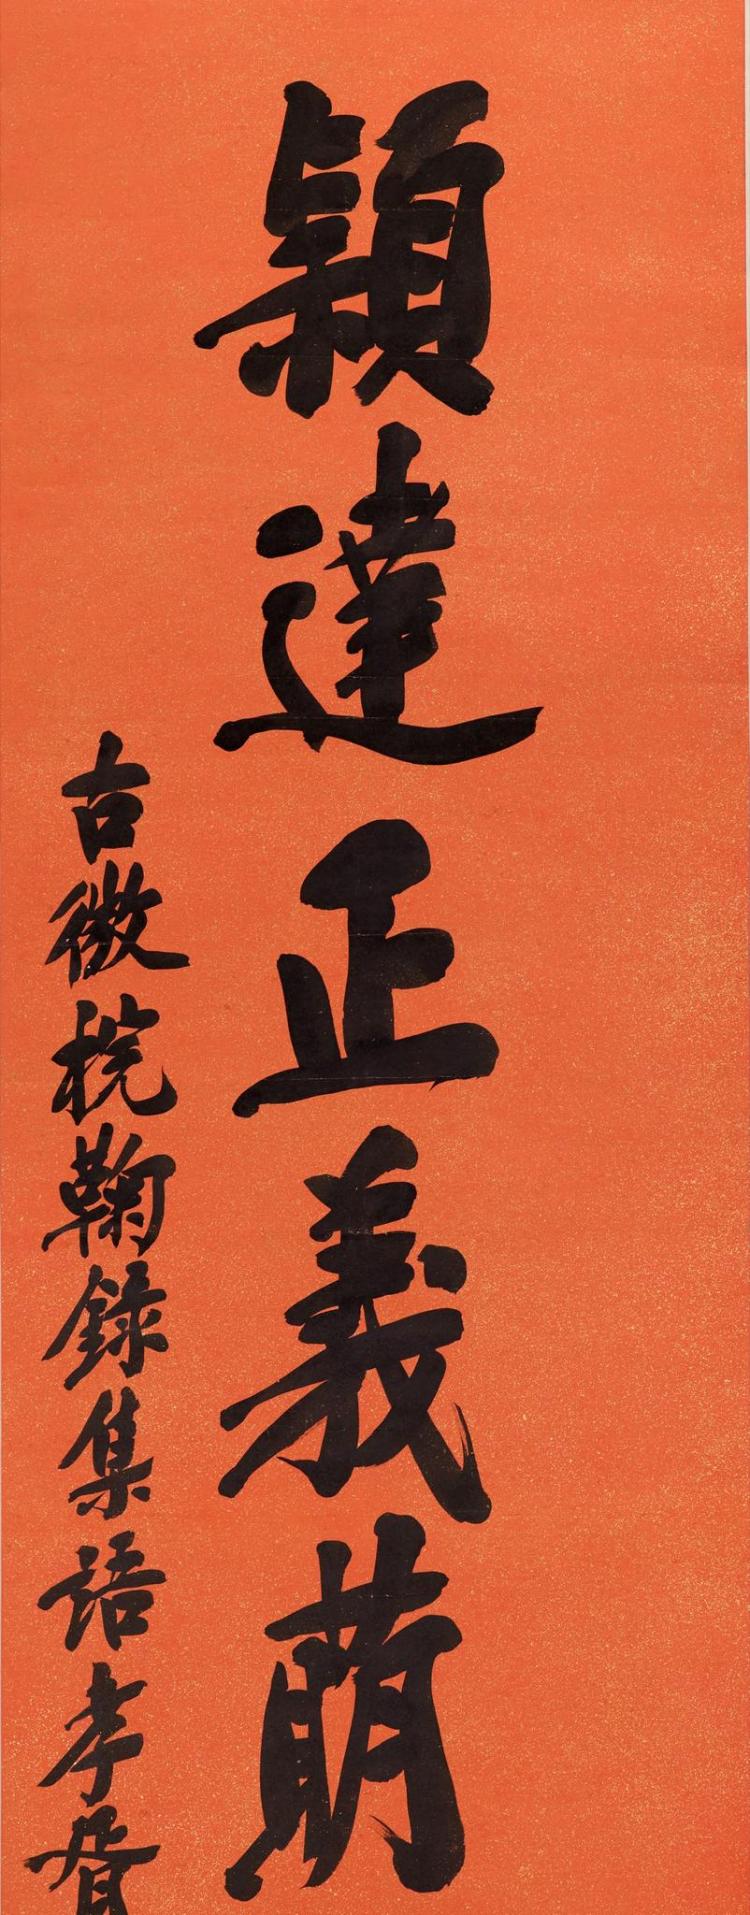 穎達正義萌
古微梡鞠錄集語孝胥